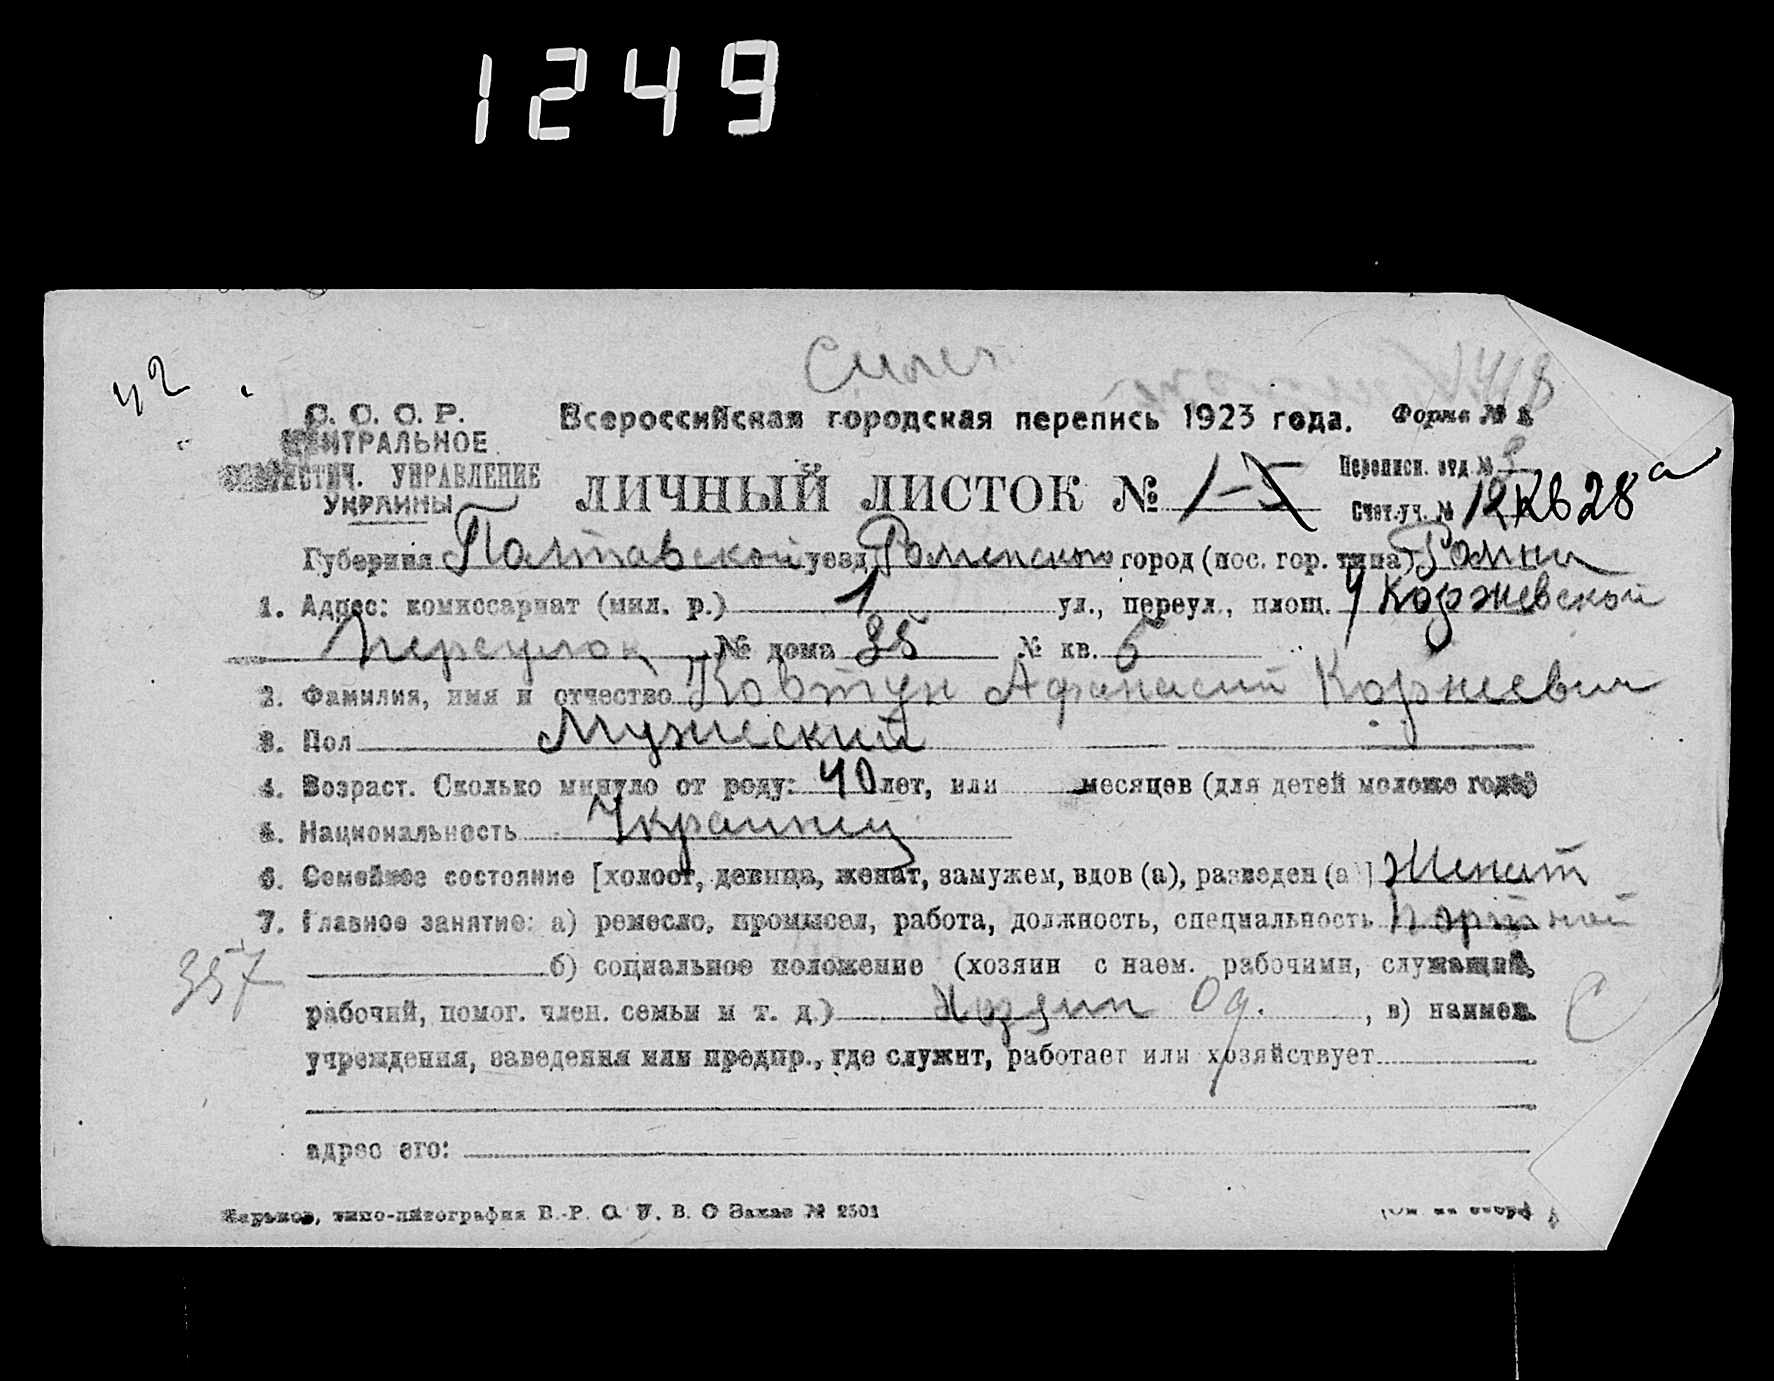 1249
42
С. С. С. Р.
ЦЕНТРАЛЬНОЕ
СТАТИСТИЧ. УПРАВЛЕНИЕ
УКРАИНЫ
Всероссийская городская перепись 1923 года. Форма № 1
ЛИЧНЫЙ ЛИСТОК №
Переписн. отд. №
Счет. уч. № 12
Губерния Полтавской уезд Роменского город (пос. гор. типа) Ромны
1. Адрес: комиссариат (мил. р.) 1 ул., переул., площ. 4 Коржевской
переулок № дома 35 № кв. 6
2. Фамилия, имя и отчество Ковтун Афанасий Корнеевич
3. Пол Мужеский
4. Возраст. Сколько минуло от роду: 40 лет, или месяцев (для детей моложе года)
5. Национальность Украинец
6. Семейное состояние [холост, девица, женат, замужем, вдов (а), разведен (а)] Женат
7. Главное занятие: а) ремесло, промысел, работа, должность, специальность Портной
357
б) социальное положение (хозяин с наем. рабочими, служащий,
рабочий, помог. член. семьи и т. д.) Хозяин Од. , в) наимен. С
учреждения, заведения или предпр., где служит, работает или хозяйствует
адрес его:
Харьков, типо-литография В.-Р. С. У. В. О Заказ № 2501